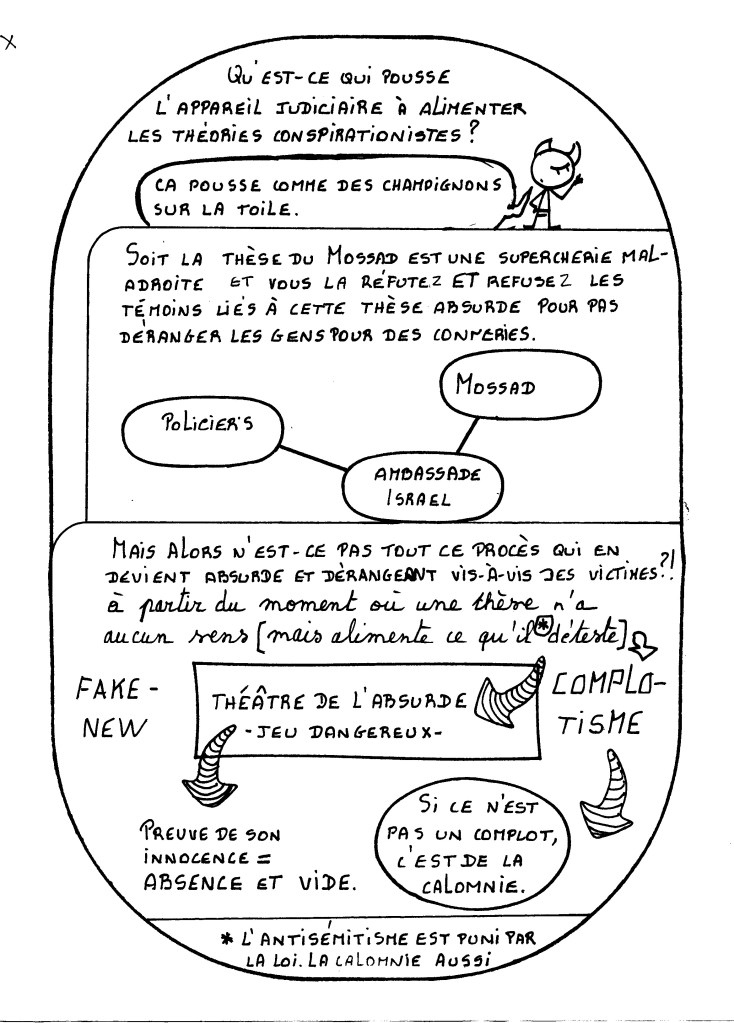 x
QU'EST-CE QUI POUSSE
L'APPAREIL JUDICIAIRE À ALIMENTER
LES THÉORIES CONSPIRATIONISTES?
CA POUSSE COMME DES CHAMPIGNONS
SUR LA TOILE.
SOIT LA THÈSE DU MOSSAD EST UNE SUPERCHERIE MAL-
ADROITE ET VOUS LA RÉFUTEZ ET REFUSEZ LES
TÉMOINS LIÉS À CETTE THÈSE ABSURDE POUR PAS
DÉRANGER LES GENS POUR DES CONNERIES.
MOSSAD
POLICIERS
AMBASSADE
ISRAEL
MAIS ALORS N'EST-CE PAS TOUT CE PROCÈS QUI EN
DEVIENT ABSURDE ET DÉRANGEANT VIS-À-VIS DES VICTIMES?!
à partir du moment où une thèse n'a
aucun sens [mais alimente ce qu'il * déteste]
FAKE-
NEW
THÉÂTRE DE L'ABSURDE
-JEU DANGEREUX-
COMPLO-
TISME
PREUVE DE SON
INNOCENCE =
ABSENCE ET VIDE.
SI CE N'EST
PAS UN COMPLOT,
C'EST DE LA
CALOMNIE.
* L'ANTISÉMITISME EST PUNI PAR
LA LOI. LA CALOMNIE AUSSI